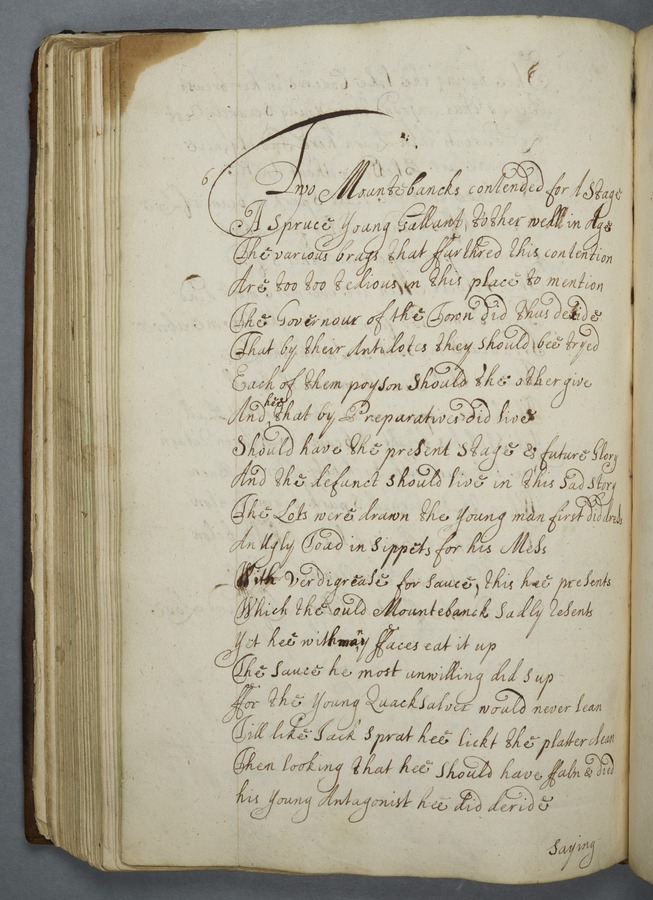 6
Two Mountebancks contended for A Stage
A Spruce Young Gallant, tother well in Age
The various brags that ffurthred this contention
Are too too tedious in this place to mention
The Governour of the Town did thus decide
That by their Antidotes they should bee tryed
Each of them poyson should the other give
And hee that by Preparatives did live
Should have the present Stage & future Glory
And the defunct should live in this Sad Story
The Lots were drawn the Young man first did dress
An Ugly Toad in Sippets for his Mess
With Verdigrease for sauce, this hee presents
Which the ould Mountebanck Sadly resents
Yet hee with many ffaces eat it up
The Sauce he most unwilling did sup
ffor the Young Quacksalver would never lean
Till like Jack Sprat hee lickt the platter clean
Then looking that hee should have ffaln & died
his Young Antagonist hee did deride
Saying